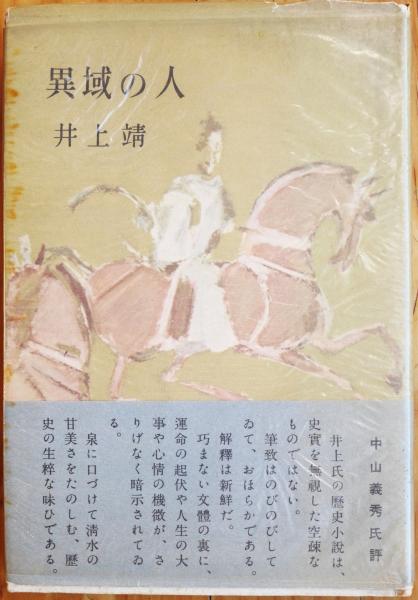 異域の人
井上靖
中山義秀氏評
井上氏の歴史小説は、
史實を無視した空疎な
ものではない。
筆致はのびのびして
ゐて、おほらかである。
解釋は新鮮だ。
巧まない文體の裏に、
運命の起伏や人生の大
事や心情の機微が、さ
りげなく暗示されてゐ
る。
泉に口づけて淸水の
甘美さをたのしむ、歴
史の生粹な味ひである。